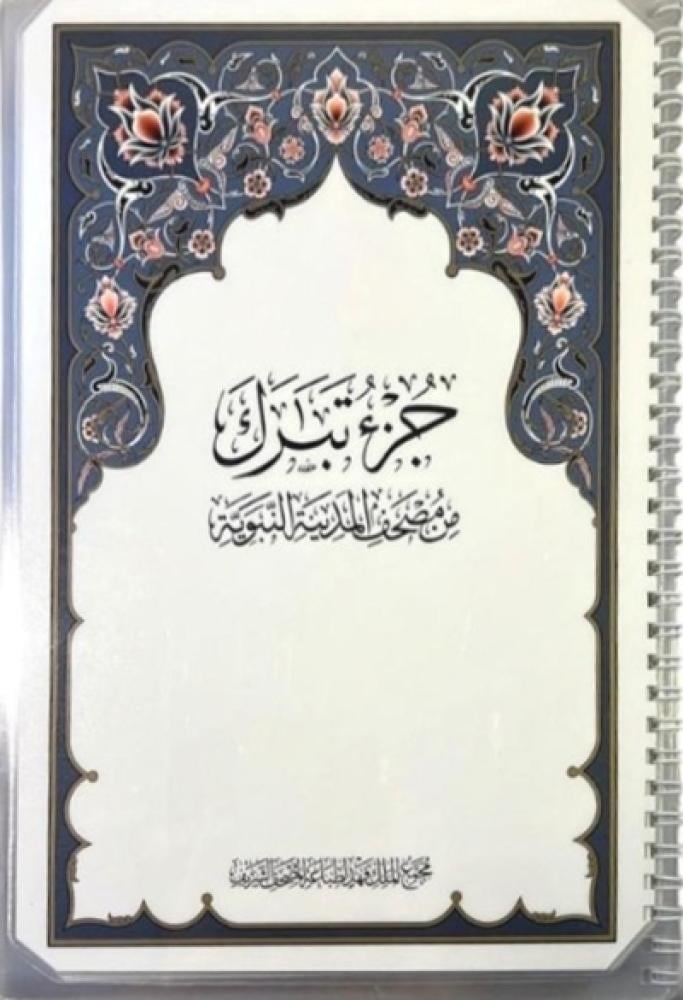 جُزْءُ تَبَٰرَكَ
مِنْ مُصْحَفِ الْمَدِينَةِ النَّبَوِيَّةِ
مجمع الملك فهد لطباعة المصحف الشريف